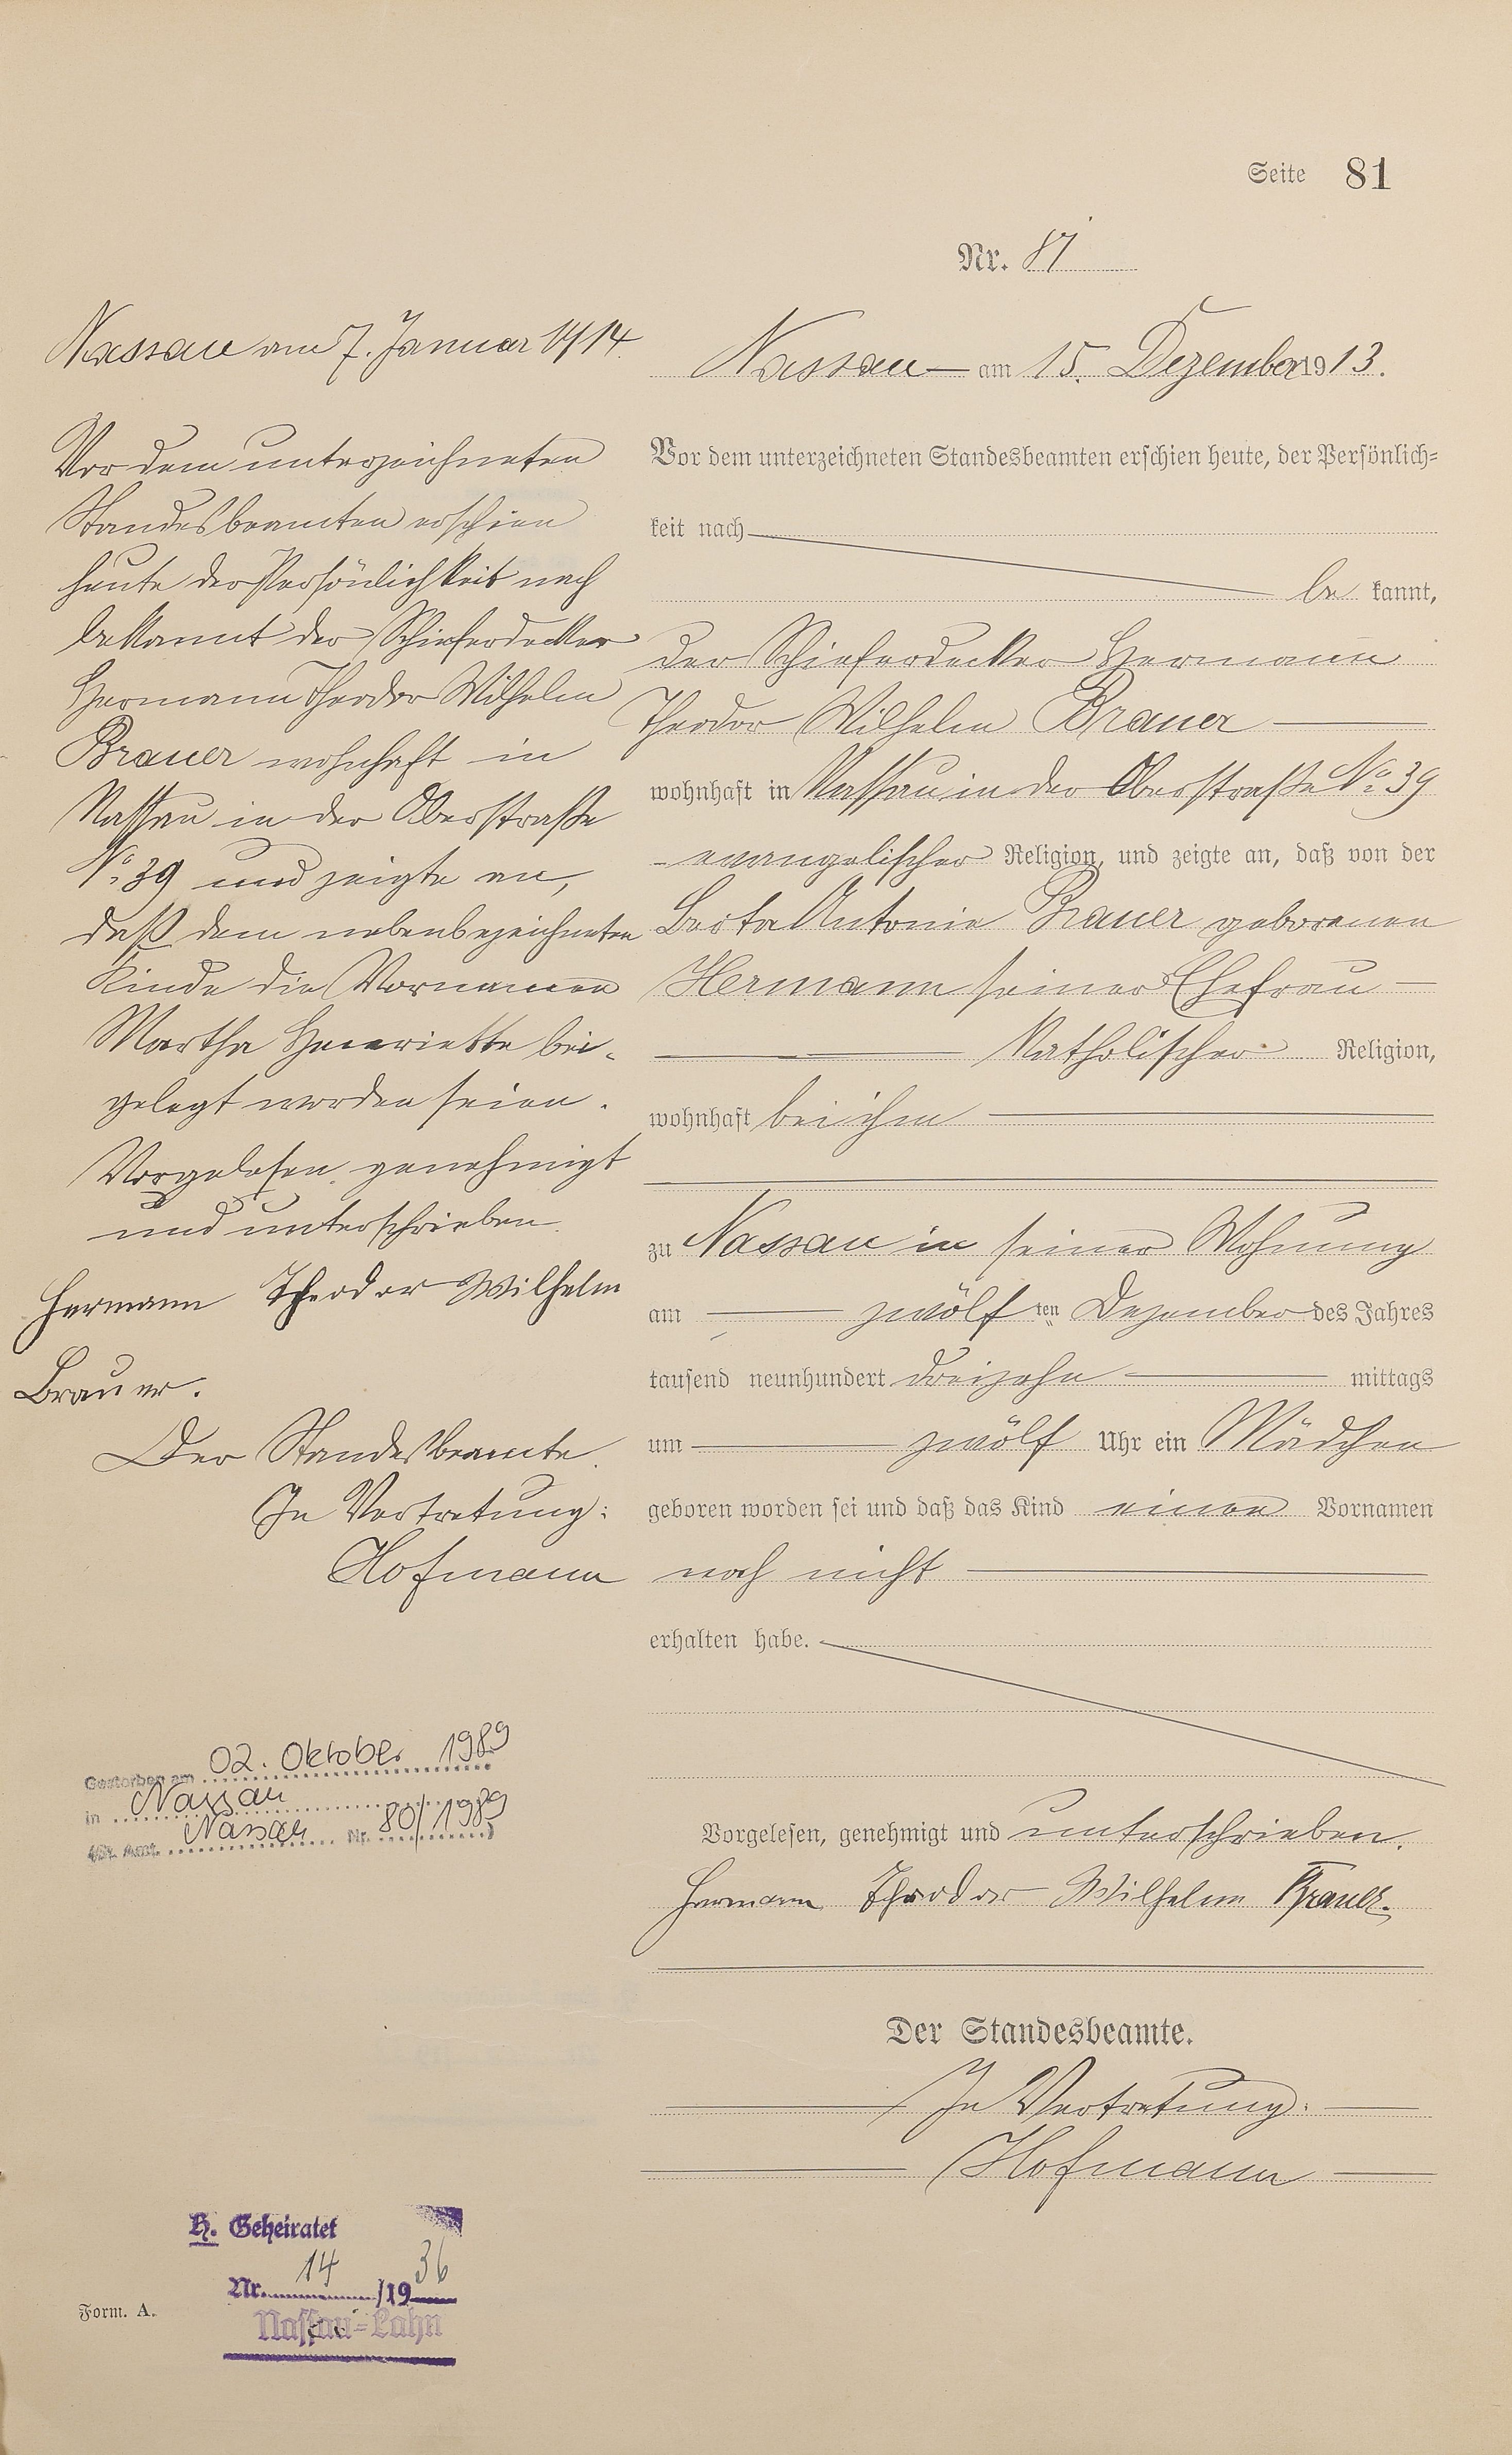 Seite 81
Nr. 81
Nassau am 7. Januar 1914.
Vor dem unterzeichneten
Standesbeamten erschien
heute der Persönlichkeit nach
bekannt der Schieferdecker
Hermann Theodor Wilhelm
Brauer wohnhaft in
Nassau in der Oberstraße
No 39 und zeigte an,
daß dem nebenbezeichneten
Kinde die Vornamen
Martha Henriette bei-
gelegt worden seien.
Vorgelesen genehmigt
und unterschrieben.
Hermann Theodor Wilhelm
Brauer.
Der Standesbeamte.
In Vertretung:
Hofmann
Gestorben am 02. Oktober 1989
in Nassau
St. Amt. Nassau Nr. 80/1989
H. Geheiratet
Nr. 14 /1936
Nassau-Lahn
Form. A.
Nassau am 15. Dezember 1913.
Vor dem unterzeichneten Standesbeamten erschien heute, der Persönlich-
keit nach
be kannt,
der Schieferdecker Hermann
Theodor Wilhelm Brauer
wohnhaft in Nassau in der Oberstraße No 39
evangelischer Religion, und zeigte an, daß von der
Berta Antonie Brauer geborenen
Hermann seiner Ehefrau
katholischer Religion,
wohnhaft bei ihm
zu Nassau in seiner Wohnung
am zwölf ten Dezember des Jahres
tausend neunhundert dreizehn mittags
um zwölf Uhr ein Mädchen
geboren worden sei und daß das Kind einen Vornamen
noch nicht
erhalten habe.
Vorgelesen, genehmigt und unterschrieben.
Hermann Theodor Wilhelm Brauer.
Der Standesbeamte.
In Vertretung:
Hofmann